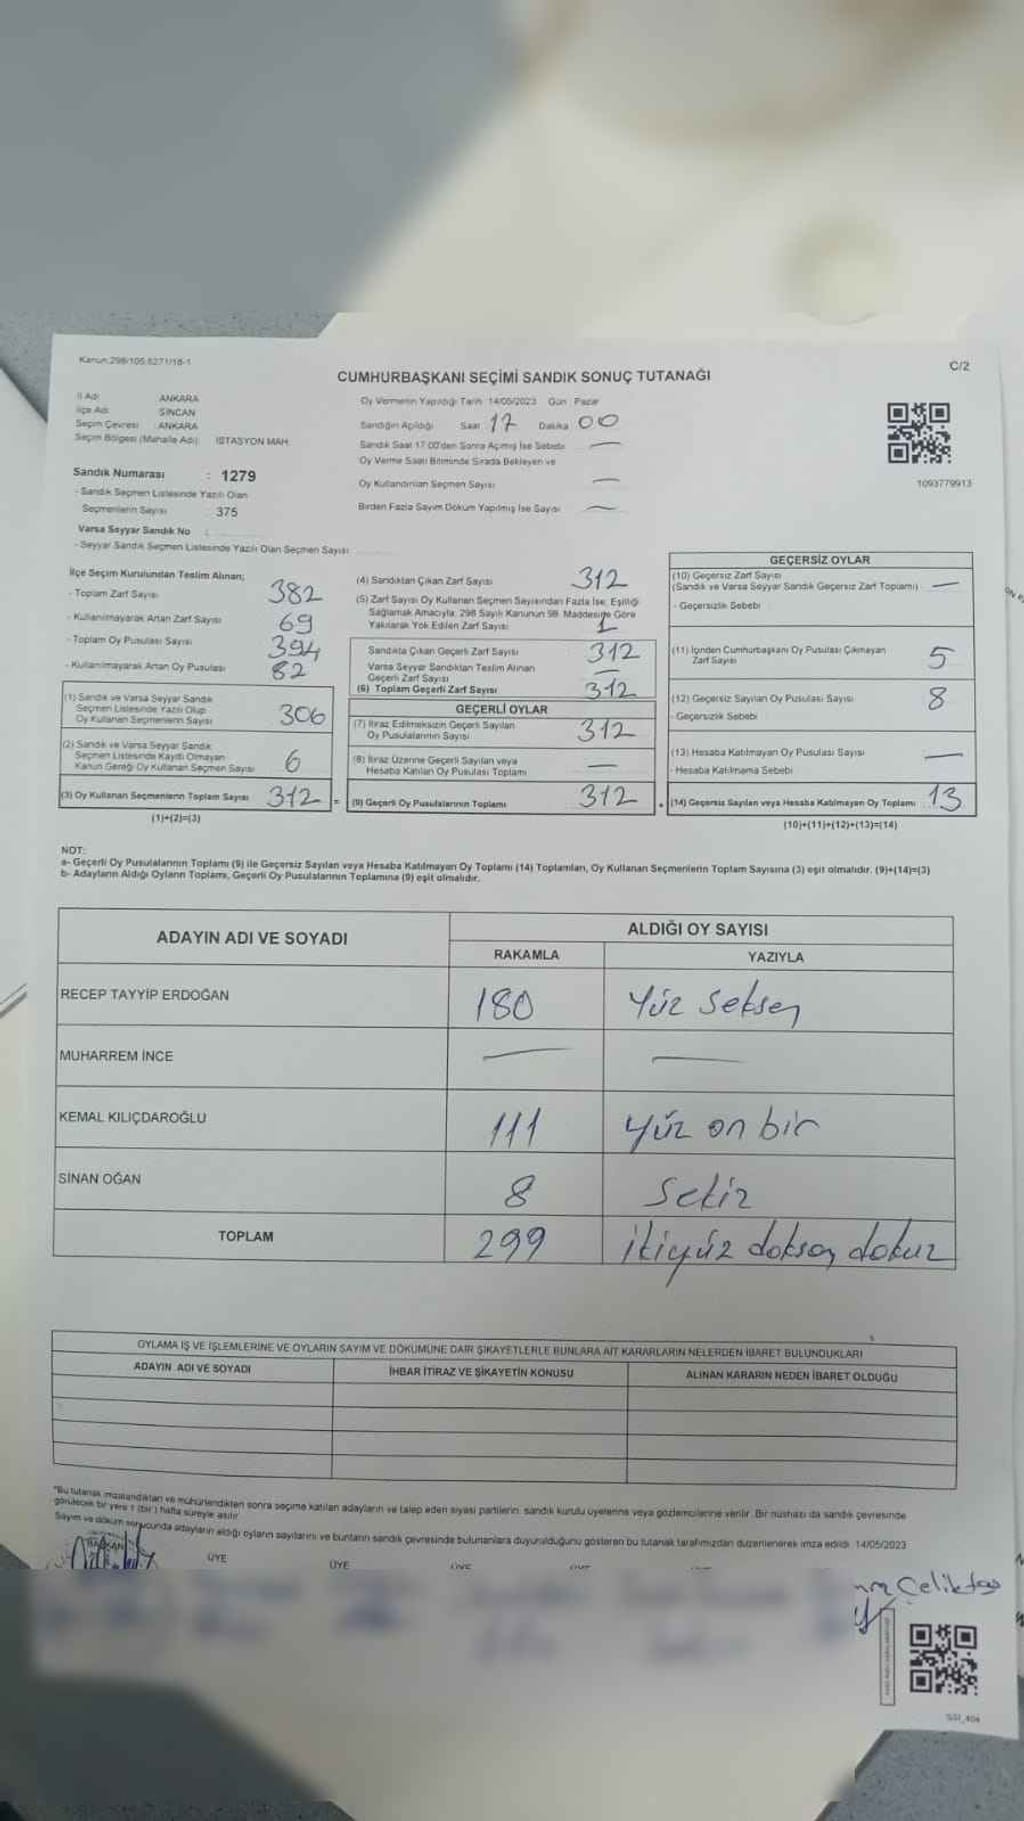 Kanun:298/105.6271/16-1
C/2
CUMHURBAŞKANI SEÇİMİ SANDIK SONUÇ TUTANAĞI
İl Adı : ANKARA
İlçe Adı : SİNCAN
Seçim Çevresi : ANKARA
Seçim Bölgesi (Mahalle Adı) : İSTASYON MAH.
Sandık Numarası : 1279
- Sandık Seçmen Listesinde Yazılı Olan
Seçmenlerin Sayısı 375
Varsa Seyyar Sandık No :
- Seyyar Sandık Seçmen Listesinde Yazılı Olan Seçmen Sayısı :
Oy Vermenin Yapıldığı Tarih : 14/05/2023 Gün : Pazar
Sandığın Açıldığı Saat 17 Dakika 00
Sandık Saat 17.00'den Sonra Açılmış İse Sebebi —
Oy Verme Saati Bitiminde Sırada Bekleyen ve
Oy Kullandırılan Seçmen Sayısı —
Birden Fazla Sayım Döküm Yapılmış İse Sayısı —
1093779913
İlçe Seçim Kurulundan Teslim Alınan;
- Toplam Zarf Sayısı 382
- Kullanılmayarak Artan Zarf Sayısı 69
- Toplam Oy Pusulası Sayısı 394
- Kullanılmayarak Artan Oy Pusulası 82
(1) Sandık ve Varsa Seyyar Sandık
Seçmen Listesinde Yazılı Olup
Oy Kullanan Seçmenlerin Sayısı 306
(2) Sandık ve Varsa Seyyar Sandık
Seçmen Listesinde Kayıtlı Olmayan
Kanun Gereği Oy Kullanan Seçmen Sayısı 6
(3) Oy Kullanan Seçmenlerin Toplam Sayısı 312 =
(1)+(2)=(3)
(4) Sandıktan Çıkan Zarf Sayısı 312
(5) Zarf Sayısı Oy Kullanan Seçmen Sayısından Fazla İse; Eşitliği
Sağlamak Amacıyla; 298 Sayılı Kanunun 98. Maddesine Göre
Yakılarak Yok Edilen Zarf Sayısı
Sandıkta Çıkan Geçerli Zarf Sayısı 312
Varsa Seyyar Sandıktan Teslim Alınan
Geçerli Zarf Sayısı —
(6) Toplam Geçerli Zarf Sayısı 312
GEÇERLİ OYLAR
(7) İtiraz Edilmeksizin Geçerli Sayılan
Oy Pusulalarının Sayısı 312
(8) İtiraz Üzerine Geçerli Sayılan veya
Hesaba Katılan Oy Pusulası Toplamı —
(9) Geçerli Oy Pusulalarının Toplamı 312
GEÇERSİZ OYLAR
(10) Geçersiz Zarf Sayısı
(Sandık ve Varsa Seyyar Sandık Geçersiz Zarf Toplamı) —
- Geçersizlik Sebebi
(11) İçinden Cumhurbaşkanı Oy Pusulası Çıkmayan
Zarf Sayısı 5
(12) Geçersiz Sayılan Oy Pusulası Sayısı 8
- Geçersizlik Sebebi
(13) Hesaba Katılmayan Oy Pusulası Sayısı —
- Hesaba Katılmama Sebebi
(14) Geçersiz Sayılan veya Hesaba Katılmayan Oy Toplamı 13
(10)+(11)+(12)+(13)=(14)
NOT:
a- Geçerli Oy Pusulalarının Toplamı (9) ile Geçersiz Sayılan veya Hesaba Katılmayan Oy Toplamı (14) Toplamları, Oy Kullanan Seçmenlerin Toplam Sayısına (3) eşit olmalıdır. (9)+(14)=(3)
b- Adayların Aldığı Oyların Toplamı, Geçerli Oy Pusulalarının Toplamına (9) eşit olmalıdır.
ADAYIN ADI VE SOYADI
ALDIĞI OY SAYISI
RAKAMLA YAZIYLA
RECEP TAYYİP ERDOĞAN 180 Yüz seksen
MUHARREM İNCE — —
KEMAL KILIÇDAROĞLU 111 Yüz on bir
SİNAN OĞAN 8 Sekiz
TOPLAM 299 ikiyüz doksan dokuz
OYLAMA İŞ VE İŞLEMLERİNE VE OYLARIN SAYIM VE DÖKÜMÜNE DAİR ŞİKAYETLERLE BUNLARA AİT KARARLARIN NELERDEN İBARET BULUNDUKLARI
ADAYIN ADI VE SOYADI İHBAR İTİRAZ VE ŞİKAYETİN KONUSU ALINAN KARARIN NEDEN İBARET OLDUĞU
"Bu tutanak imzalandıktan ve mühürlendikten sonra seçime katılan adayların ve talep eden siyasi partilerin, sandık kurulu üyelerine veya gözlemcilerine verilir. Bir nüshası da sandık çevresinde
görülecek bir yere 1 (bir) hafta süreyle asılır.
Sayım ve döküm sonucunda adayların aldığı oyların sayılarını ve bunların sandık çevresinde bulunanlara duyurulduğunu gösteren bu tutanak tarafımızdan düzenlenerek imza edildi. 14/05/2023
BAŞKAN ÜYE ÜYE
Çeliktaş